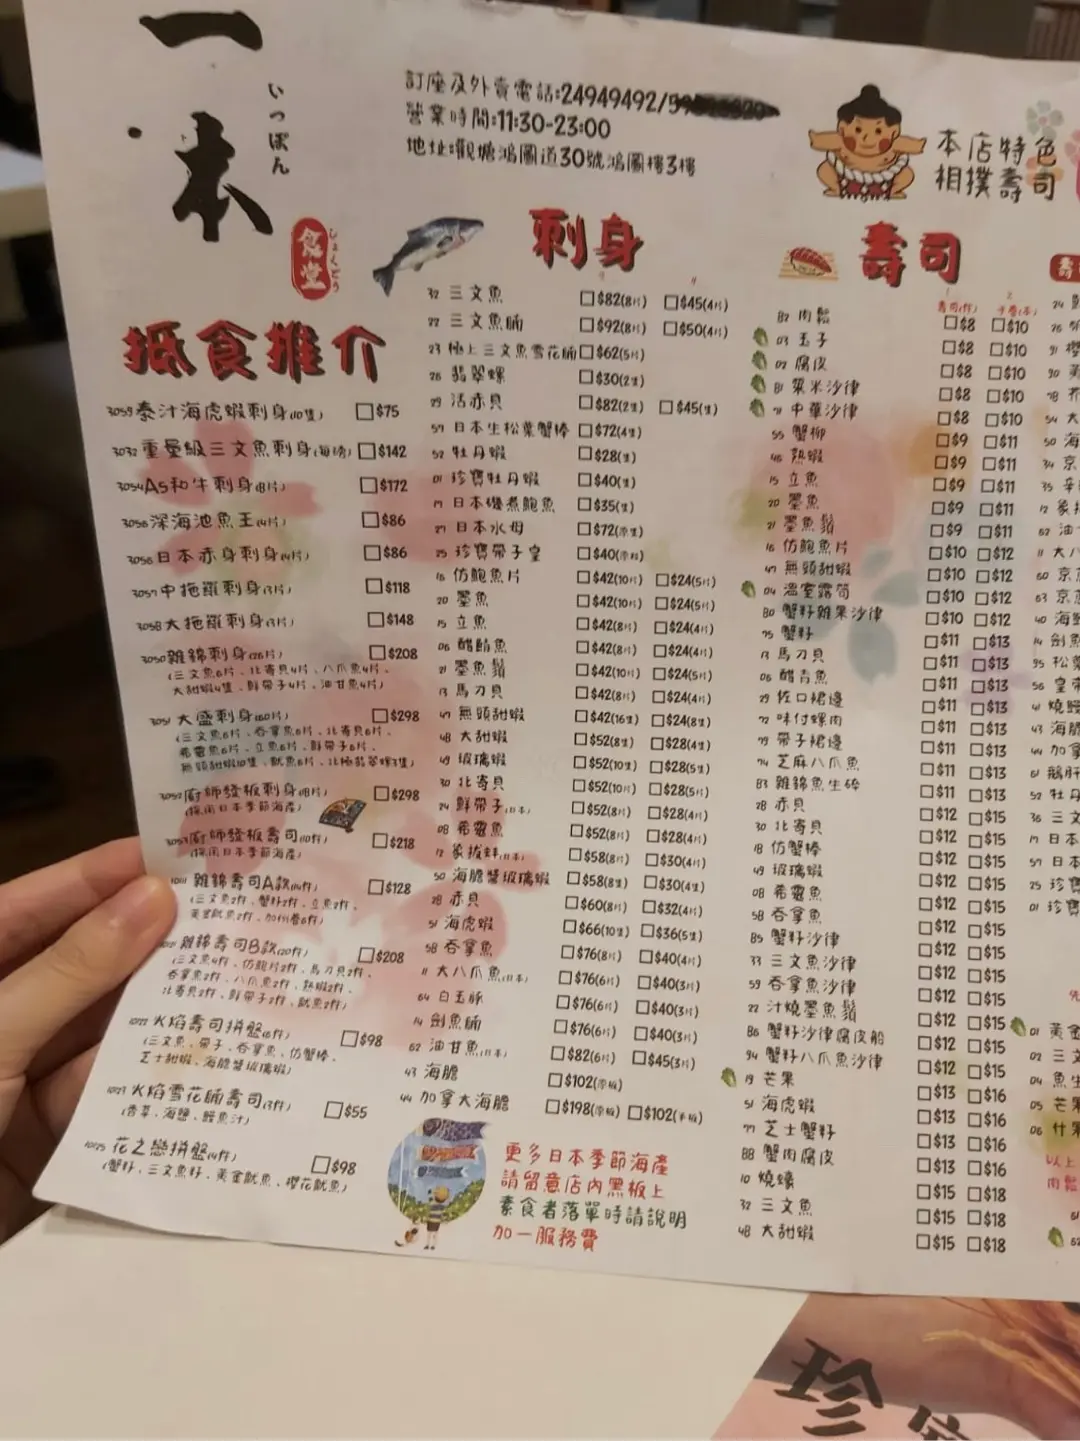 一本
いっぽん
食堂
しょくどう
訂座及外賣電話:24949492/
營業時間:11:30-23:00
地址:觀塘鴻圖道30號鴻圖樓3樓
本店特色
相撲壽司
抵食推介
3059 泰汁海虎蝦刺身(10隻) $75
3032 重量級三文魚刺身(每磅) $142
3054 A5和牛刺身(8片) $172
3056 深海池魚王(4片) $86
3056 日本赤身刺身(4片) $86
3057 中拖羅刺身(3片) $118
3058 大拖羅刺身(3片) $148
3050 雜錦刺身(26片) $208
(三文魚6片、北寄貝4片、八爪魚4片、
大甜蝦4隻、鮮帶子4片、油甘魚4片)
3051 大盛刺身(60片) $298
(三文魚6片、吞拿魚6片、北寄貝6片、
希靈魚6片、立魚6片、鮮帶子6片、
無頭甜蝦10隻、魷魚6片、北極翡翠螺3隻)
3052 廚師發板刺身(18片) $298
(採用日本季節海產)
3053 廚師發板壽司(10件) $218
(採用日本季節海產)
1011 雜錦壽司A款(14件) $128
(三文魚2件、蟹籽2件、立魚2件、
黃金魷魚2件、加州卷6件)
1021 雜錦壽司B款(20件) $208
(三文魚4件、仿鮑片2件、馬刀貝2件、
吞拿魚2件、八爪魚2件、熟蝦2件、
北寄貝2件、鮮帶子2件、魷魚2件)
1022 火焰壽司拼盤(6件) $98
(三文魚、帶子、吞拿魚、仿蟹棒、
芝士甜蝦、海膽醬玻璃蝦)
1023 火焰雪花腩壽司(3件) $55
(香草、海鹽、鰻魚汁)
1025 花之戀拼盤(4件) $98
(蟹籽、三文魚籽、黃金魷魚、櫻花魷魚)
刺身
32 三文魚 $82(8片) $45(4片)
22 三文魚腩 $92(8片) $50(4片)
23 極上三文魚雪花腩 $62(5片)
26 翡翠螺 $30(2隻)
29 活赤貝 $82(2隻) $45(1隻)
57 日本生松葉蟹棒 $72(4隻)
52 牡丹蝦 $28(1隻)
01 珍寶牡丹蝦 $40(1隻)
17 日本磯煮鮑魚 $35(1隻)
27 日本水母 $72(原隻)
25 珍寶帶子皇 $40(原粒)
16 仿鮑魚片 $42(10片) $24(5片)
20 墨魚 $42(10片) $24(5片)
15 立魚 $42(8片) $24(4片)
06 醋鯖魚 $42(8片) $24(4片)
21 墨魚鬚 $42(10片) $24(5片)
13 馬刀貝 $42(8片) $24(4片)
47 無頭甜蝦 $42(16隻) $24(8隻)
48 大甜蝦 $52(8隻) $28(4隻)
49 玻璃蝦 $52(10隻) $28(5隻)
30 北寄貝 $52(10片) $28(5片)
24 鮮帶子(日本) $52(8片) $28(4片)
08 希靈魚 $52(8片) $28(4片)
12 象拔蚌(日本) $58(8片) $30(4片)
50 海膽醬玻璃蝦 $58(8隻) $30(4隻)
28 赤貝 $60(8片) $32(4片)
51 海虎蝦 $66(10隻) $36(5隻)
58 吞拿魚 $76(8片) $40(4片)
11 大八爪魚(日本) $76(6片) $40(3片)
64 白玉豚 $76(6片) $40(3片)
14 劍魚腩 $76(6片) $40(3片)
62 油甘魚(日本) $82(6片) $45(3片)
43 海膽 $102(原板)
44 加拿大海膽 $198(原板) $102(半板)
更多日本季節海產
請留意店內黑板上
素食者落單時請說明
加一服務費
壽司
壽司(件) 手卷(本)
82 肉鬆 $8 $10
03 玉子 $8 $10
02 腐皮 $8 $10
81 粟米沙律 $8 $10
71 中華沙律 $8 $10
55 蟹柳 $9 $11
46 熟蝦 $9 $11
15 立魚 $9 $11
20 墨魚 $9 $11
21 墨魚鬚 $9 $11
16 仿鮑魚片 $10 $12
47 無頭甜蝦 $10 $12
04 溫室露筍 $10 $12
80 蟹籽雜果沙律 $10 $12
75 蟹籽 $11 $13
13 馬刀貝 $11 $13
06 醋青魚 $11 $13
29 佐口裙邊 $11 $13
72 味付螺肉 $11 $13
79 帶子裙邊 $11 $13
74 芝麻八爪魚 $11 $13
83 雜錦魚生碎 $11 $13
28 赤貝 $12 $15
30 北寄貝 $12 $15
18 仿蟹棒 $12 $15
49 玻璃蝦 $12 $15
08 希靈魚 $12 $15
58 吞拿魚 $12 $15
85 蟹籽沙律 $12 $15
33 三文魚沙律 $12 $15
59 吞拿魚沙律 $12 $15
22 汁燒墨魚鬚 $12 $15
86 蟹籽沙律腐皮船 $12 $15
94 蟹籽八爪魚沙律 $12 $15
19 芒果 $13 $16
51 海虎蝦 $13 $16
77 芝士蟹籽 $13 $16
88 蟹肉腐皮 $13 $16
10 燒蠔 $15 $18
32 三文魚 $15 $18
48 大甜蝦 $15 $18
珍